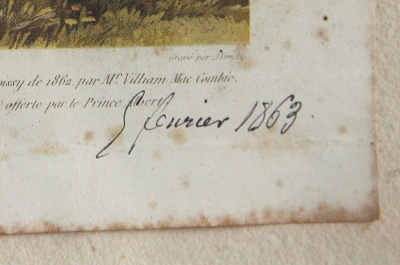 Gravé par
oissy de 1862, par Mr. William Mac Combie.
offerte par le Prince Albert.
5 février 1863.